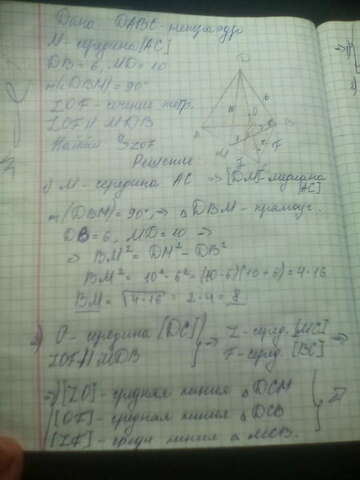 Дано DABC - тетраэдр
M - середина [AC]
DB = 6, MD = 10
m(∠DBM) = 90°
ZOF - сечение тетр.
ZOF ∥ MDB
Найти S ZOF
Решение
1) M - середина AC ⇒ [DM] - медиана [AC]
m(∠DBM) = 90°, ⇒ △DBM - прямоуг.
DB = 6, MD = 10 ⇒
⇒ BM² = DM² - DB²
BM² = 10² - 6² = (10-6)(10+6) = 4·16
BM = √4·16 = 2·4 = 8
2) O - середина [DC] } ⇒ Z - серед. [MC] } ⇒
ZOF ∥ MDB F - серед. [BC]
⇒ [ZO] - средняя линия △DCM
[OF] - средняя линия △DCB } ⇒
[ZF] - средн линия △ MCB.